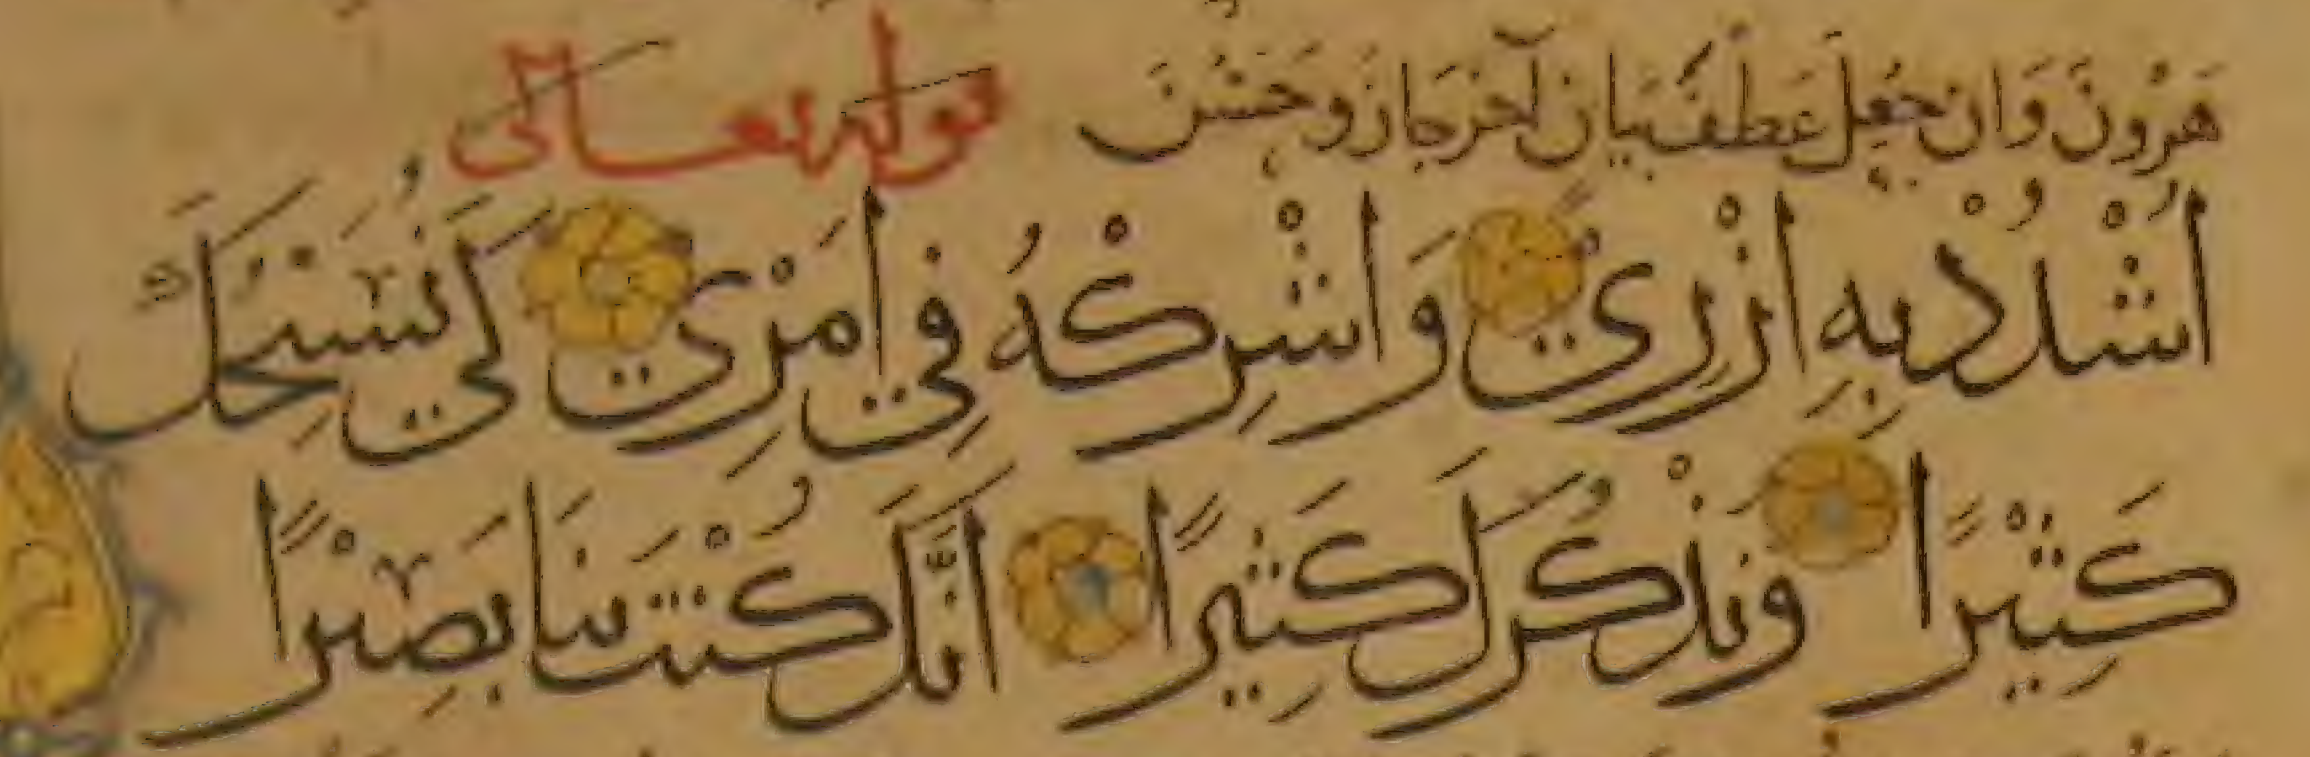 هَرُونَ وَان جُعِلَ عَطْفَ بَيَانٍ آخَرَ جَازَ وَحَسُنَ قوله تعالى
اُشْدُدْ بِهِ اَزْرِيْ وَاَشْرِكْهُ فِي اَمْرِيْ كَيْ نُسَبِّحَكَ
كَثِيْرًا وَنَذْكُرَكَ كَثِيْرًا اِنَّكَ كُنْتَ بِنَا بَصِيْرًا